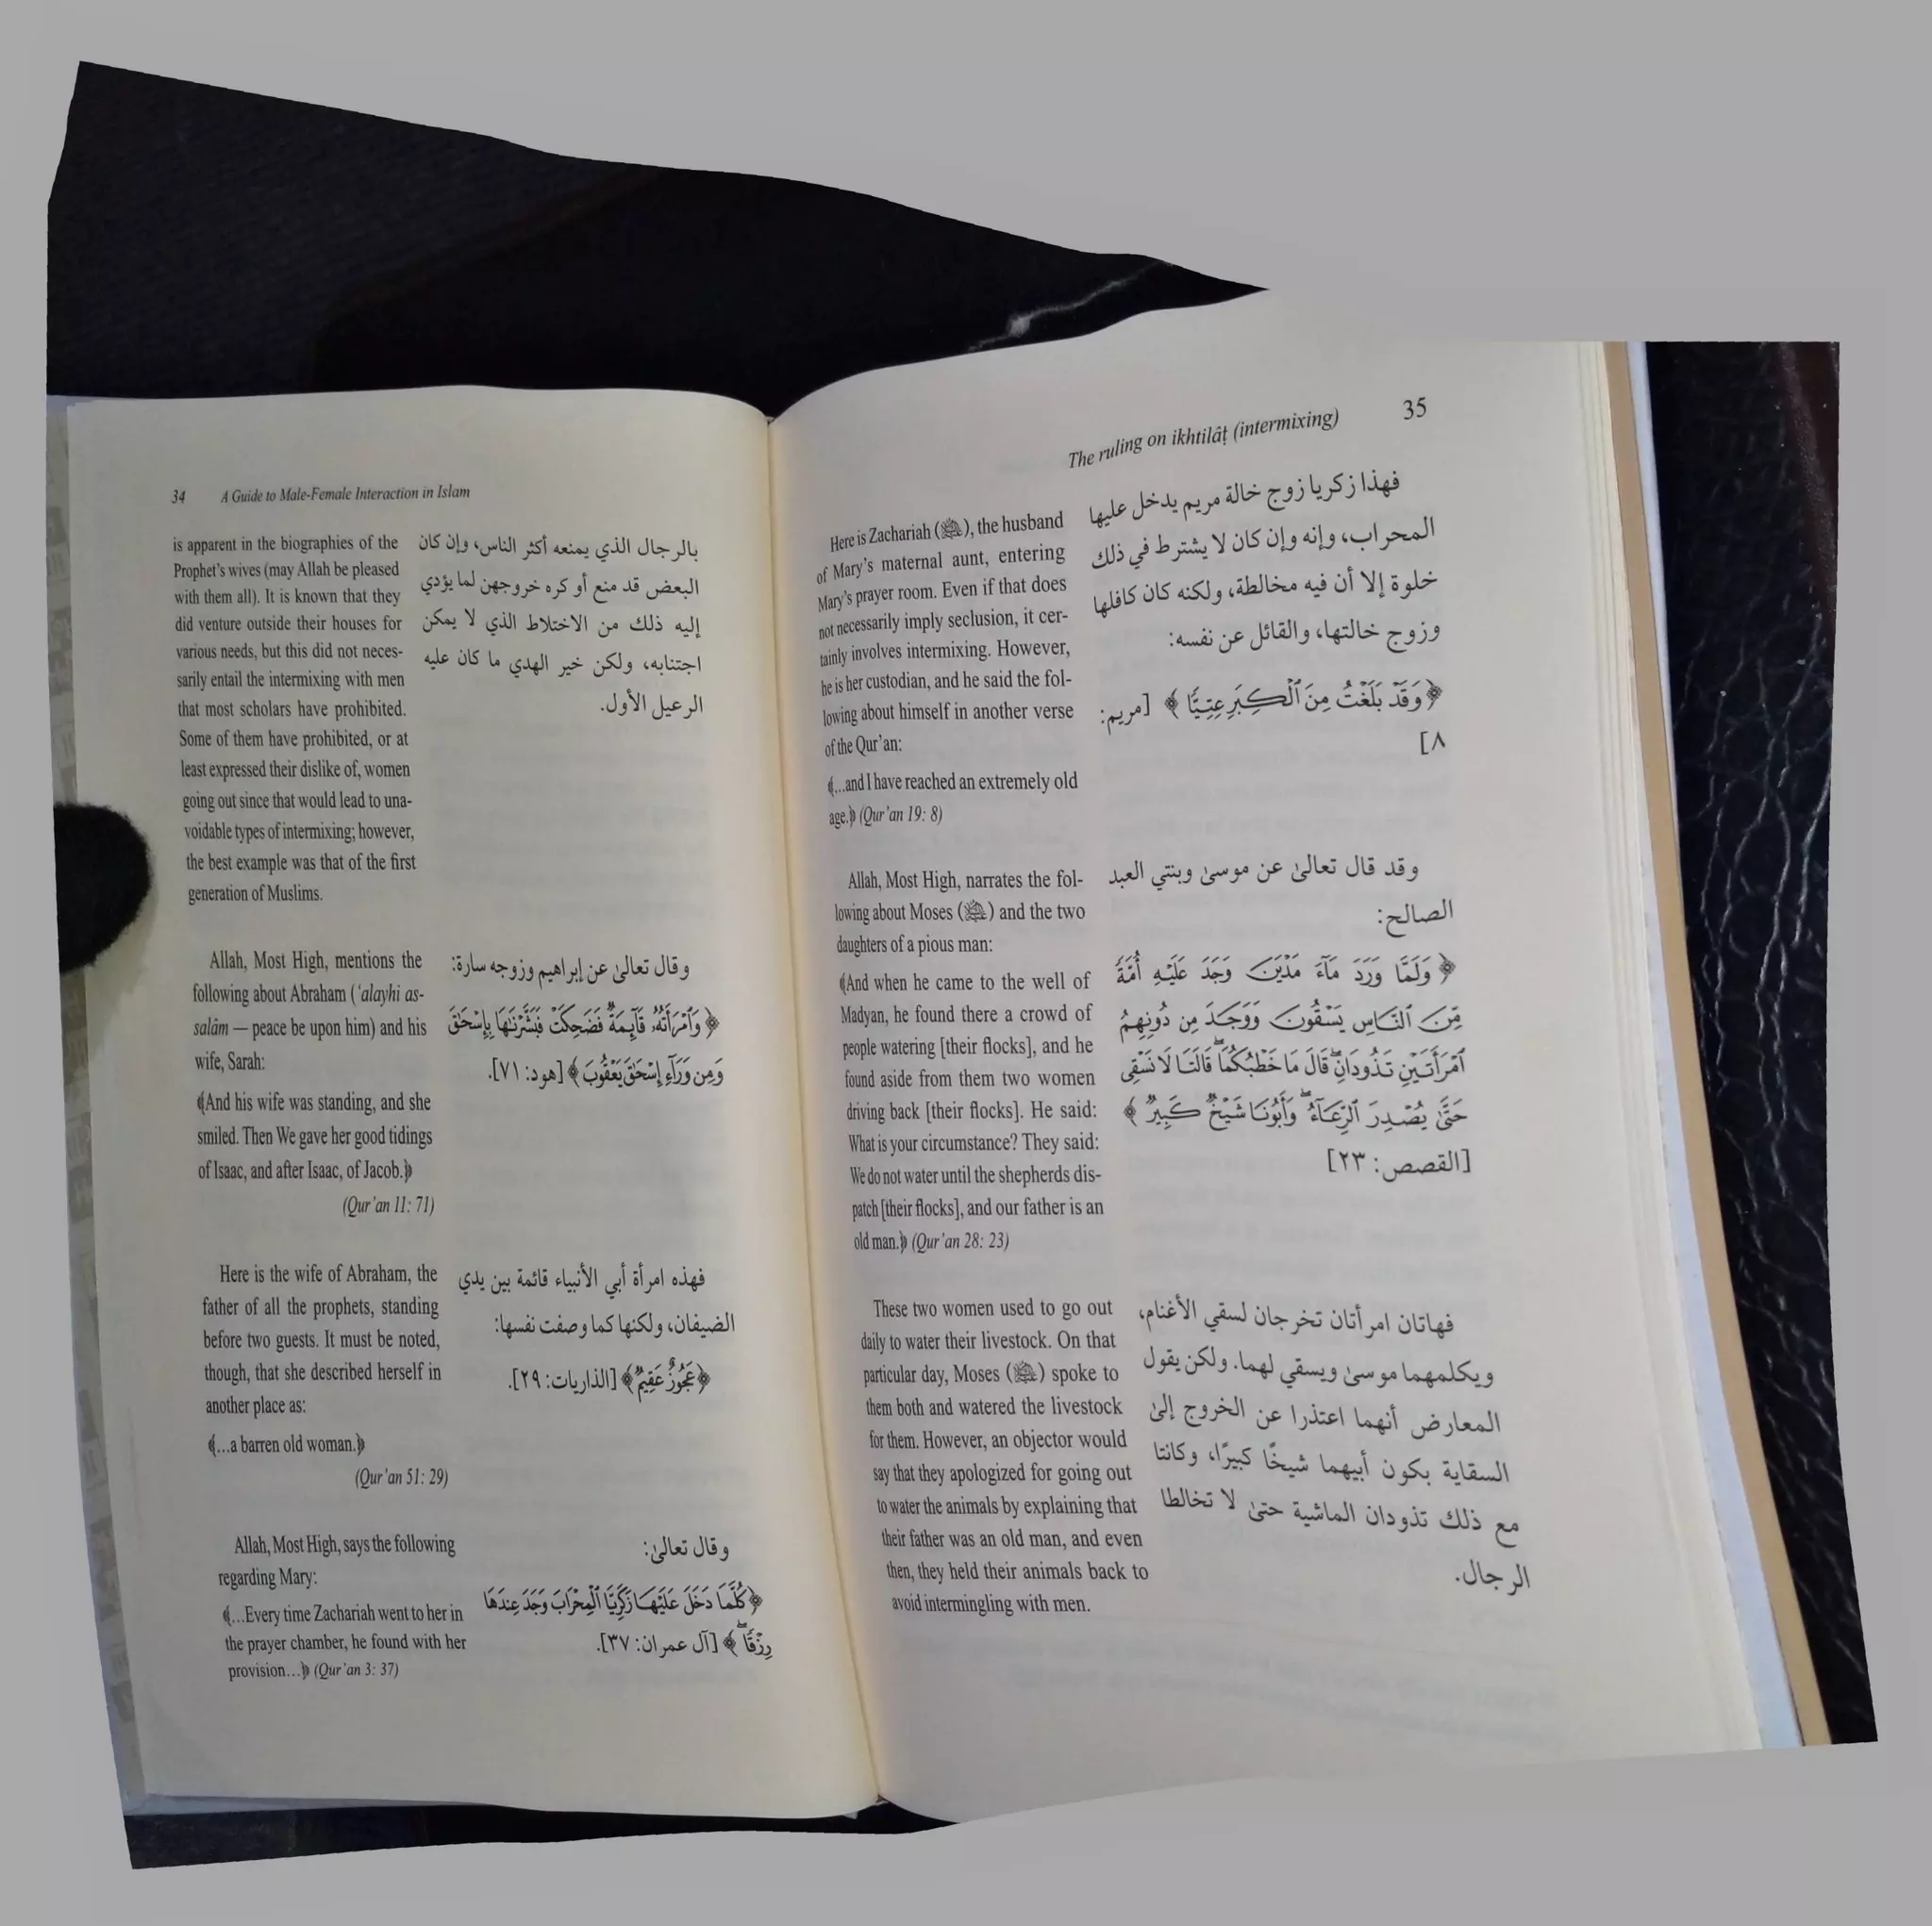 34 A Guide to Male-Female Interaction in Islam
is apparent in the biographies of the
Prophet's wives (may Allah be pleased
with them all). It is known that they
did venture outside their houses for
various needs, but this did not neces-
sarily entail the intermixing with men
that most scholars have prohibited.
Some of them have prohibited, or at
least expressed their dislike of, women
going out since that would lead to una-
voidable types of intermixing; however,
the best example was that of the first
generation of Muslims.
بالرجال الذي يمنعه أكثر الناس، وإن كان
البعض قد منع أو كره خروجهن لما يؤدي
إليه ذلك من الاختلاط الذي لا يمكن
اجتنابه، ولكن خير الهدي ما كان عليه
الرعيل الأول.
Allah, Most High, mentions the
following about Abraham (‘alayhi as-
salâm — peace be upon him) and his
wife, Sarah:
﴾And his wife was standing, and she
smiled. Then We gave her good tidings
of Isaac, and after Isaac, of Jacob.﴿
(Qur’an 11: 71)
وقال تعالىٰ عن إبراهيم وزوجه سارة:
﴿وَٱمْرَأَتُهُۥ قَآئِمَةٌ فَضَحِكَتْ فَبَشَّرْنَٰهَا بِإِسْحَٰقَ
وَمِن وَرَآءِ إِسْحَٰقَ يَعْقُوبَ﴾ [هود: ٧١].
Here is the wife of Abraham, the
father of all the prophets, standing
before two guests. It must be noted,
though, that she described herself in
another place as:
﴾...a barren old woman.﴿
(Qur’an 51: 29)
فهذه امرأة أبي الأنبياء قائمة بين يدي
الضيفان، ولكنها كما وصفت نفسها:
﴿عَجُوزٌ عَقِيمٌ﴾ [الذاريات: ٢٩].
Allah, Most High, says the following
regarding Mary:
﴾...Every time Zachariah went to her in
the prayer chamber, he found with her
provision...﴿ (Qur’an 3: 37)
وقال تعالىٰ:
﴿كُلَّمَا دَخَلَ عَلَيْهَا زَكَرِيَّا ٱلْمِحْرَابَ وَجَدَ عِندَهَا
رِزْقًا ۖ﴾ [آل عمران: ٣٧].
The ruling on ikhtilâṭ (intermixing) 35
Here is Zachariah (ﷺ), the husband
of Mary's maternal aunt, entering
Mary's prayer room. Even if that does
not necessarily imply seclusion, it cer-
tainly involves intermixing. However,
he is her custodian, and he said the fol-
lowing about himself in another verse
of the Qur’an:
﴾...and I have reached an extremely old
age.﴿ (Qur’an 19: 8)
فهذا زكريا زوج خالة مريم يدخل عليها
المحراب، وإنه وإن كان لا يشترط في ذلك
خلوة إلا أن فيه مخالطة، ولكنه كان كافلها
وزوج خالتها، والقائل عن نفسه:
﴿وَقَدْ بَلَغْتُ مِنَ ٱلْكِبَرِ عِتِيًّا﴾ [مريم:
٨]
Allah, Most High, narrates the fol-
lowing about Moses (ﷺ) and the two
daughters of a pious man:
﴾And when he came to the well of
Madyan, he found there a crowd of
people watering [their flocks], and he
found aside from them two women
driving back [their flocks]. He said:
What is your circumstance? They said:
We do not water until the shepherds dis-
patch [their flocks], and our father is an
old man.﴿ (Qur’an 28: 23)
وقد قال تعالىٰ عن موسىٰ وبنتي العبد
الصالح:
﴿وَلَمَّا وَرَدَ مَآءَ مَدْيَنَ وَجَدَ عَلَيْهِ أُمَّةً
مِّنَ ٱلنَّاسِ يَسْقُونَ وَوَجَدَ مِن دُونِهِمُ
ٱمْرَأَتَيْنِ تَذُودَانِ ۖ قَالَ مَا خَطْبُكُمَا ۖ قَالَتَا لَا نَسْقِى
حَتَّىٰ يُصْدِرَ ٱلرِّعَآءُ ۖ وَأَبُونَا شَيْخٌ كَبِيرٌ﴾
[القصص: ٢٣]
These two women used to go out
daily to water their livestock. On that
particular day, Moses (ﷺ) spoke to
them both and watered the livestock
for them. However, an objector would
say that they apologized for going out
to water the animals by explaining that
their father was an old man, and even
then, they held their animals back to
avoid intermingling with men.
فهاتان امرأتان تخرجان لسقي الأغنام،
ويكلمهما موسىٰ ويسقي لهما. ولكن يقول
المعارض أنهما اعتذرا عن الخروج إلىٰ
السقاية بكون أبيهما شيخًا كبيرًا، وكانتا
مع ذلك تذودان الماشية حتىٰ لا تخالطا
الرجال.